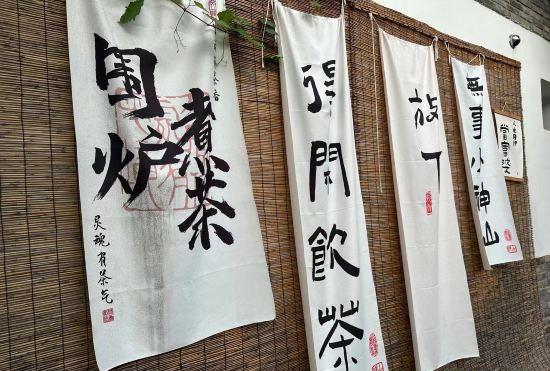 围炉
煮茶
灵魂有茶气
得閒飲茶
放下
無事小神仙